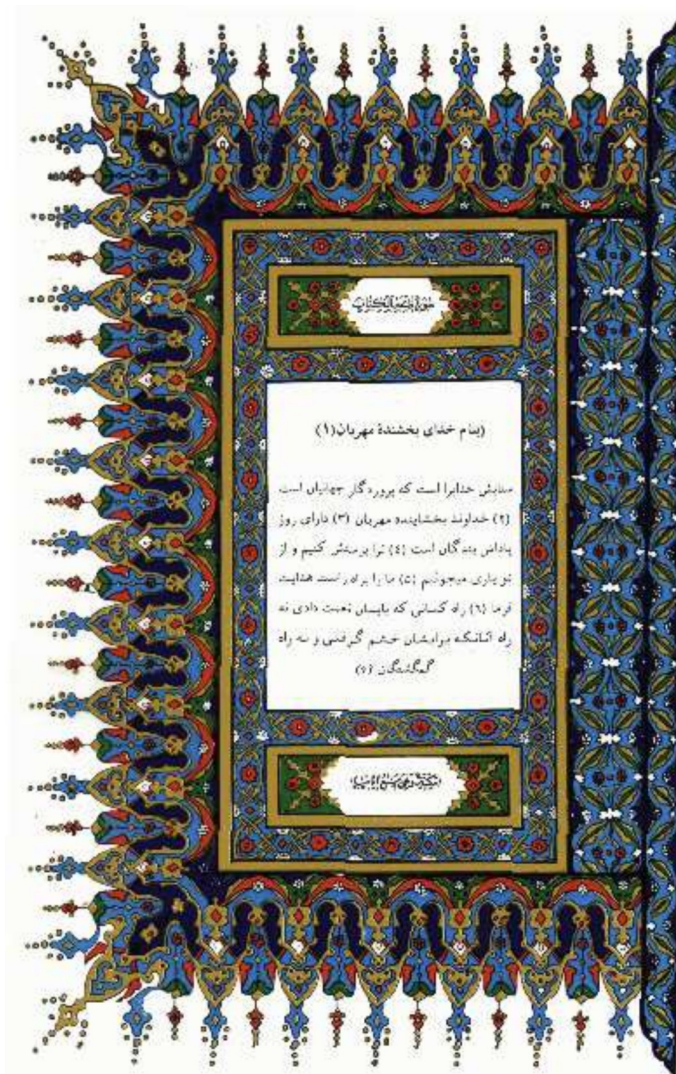 سورة فاتحة الكتاب
(بنام خدای بخشندهٔ مهربان(۱)
ستایش خدایرا است که پروردگار جهانیان است
(۲) خداوند بخشاینده مهربان (۳) دارای روز
پاداش بندگان است (٤) ترا پرستش کنیم و از
تو یاری میجوئیم (۵) ما را براه راست هدایت
فرما (٦) راه کسانی که بایشان نعمت دادی نه
راه آنانکه برایشان خشم گرفتی و نه راه
گمگشتگان (۷)
مكية وهي سبع آيات